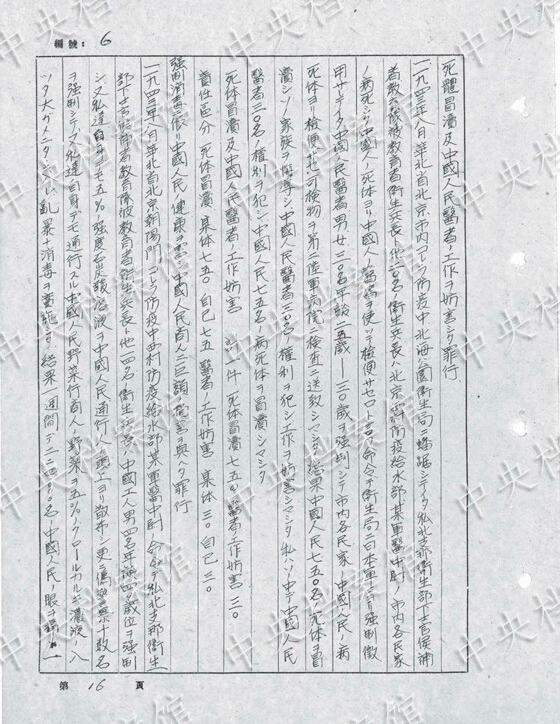 編號: 6
死體冒瀆及中國人民醫者ノ工作ヲ妨害シタ罪行
一九四三年八月華北省北京市内コレラ防疫中北海公園衛生局ニ蟠踞シテイタ私北支那衛生部下士官候補
者教育隊被教育者衛生兵長ト他二〇名ノ衛生兵長ハ北京市防疫給水部ノ某軍醫中尉ノ市内各民家
ノ病死シタ中國人ノ死体ヨリ中國人ノ醫者ヲ使ッテ檢便サセロト言フ命令デ衛生局ニ日本軍ニヨリ強制徴
用サレテイタ中國人民醫者男女三〇名平均二五歳——三〇歳ヲ強制シテ市内各民家ノ中國人民ノ病
死体ヨリ檢便ヲ行ヒ可檢物ヲ第二陸軍病院ニ檢査ニ送致シマシタ結果中國人民七五〇名ノ死体ヲ冒
瀆シソノ家族ヲ侮辱シ中國人民醫者三〇名ノ權利ヲ犯シ工作ヲ妨害シマシタ私ハソノ中デ中國人民
醫者三〇名ノ權利ヲ犯シ中國人民七五名ノ病死体ヲ冒瀆シマシタ
死体冒瀆及中國人民醫者ノ工作妨害 件 死体冒瀆七五〇 醫者ノ工作妨害 三〇
責任區分 死体冒瀆 集体七五〇 自己七五 醫者ノ工作妨害 集体三〇 自己三〇
強制消毒ニ依リ中國人民ノ健康ヲ害シ中國人民商人ニ巨額ノ損害ヲ與ヘタ罪行
一九四三年八月華北省北京朝陽門コレラ防疫中西村防疫給水部某軍醫中尉ノ命令デ私北支那衛生
部下士官候補者教育隊被教育者衛生兵長ト他一四名ノ衛生兵長ハ中國工人男四名平均四〇歳位ヲ強制
シ又私達自身デモ五%ノ強度石炭酸溶液ヲ中國人民通行人ノ頭上ヨリ散布シ更ニ偽警察十数名
ヲ強制シテ又私達自身デモ通行スル中國人民野菜行商人ノ野菜ヲ五%ノクロールカルキ濃液ノ入
ッタ大ガメニタタキ込ム亂暴ナ消毒ヲ實施シタ結果一週間デ二一〇〇名ノ中國人民ノ眼ヲ
第 16 頁
中央档案馆